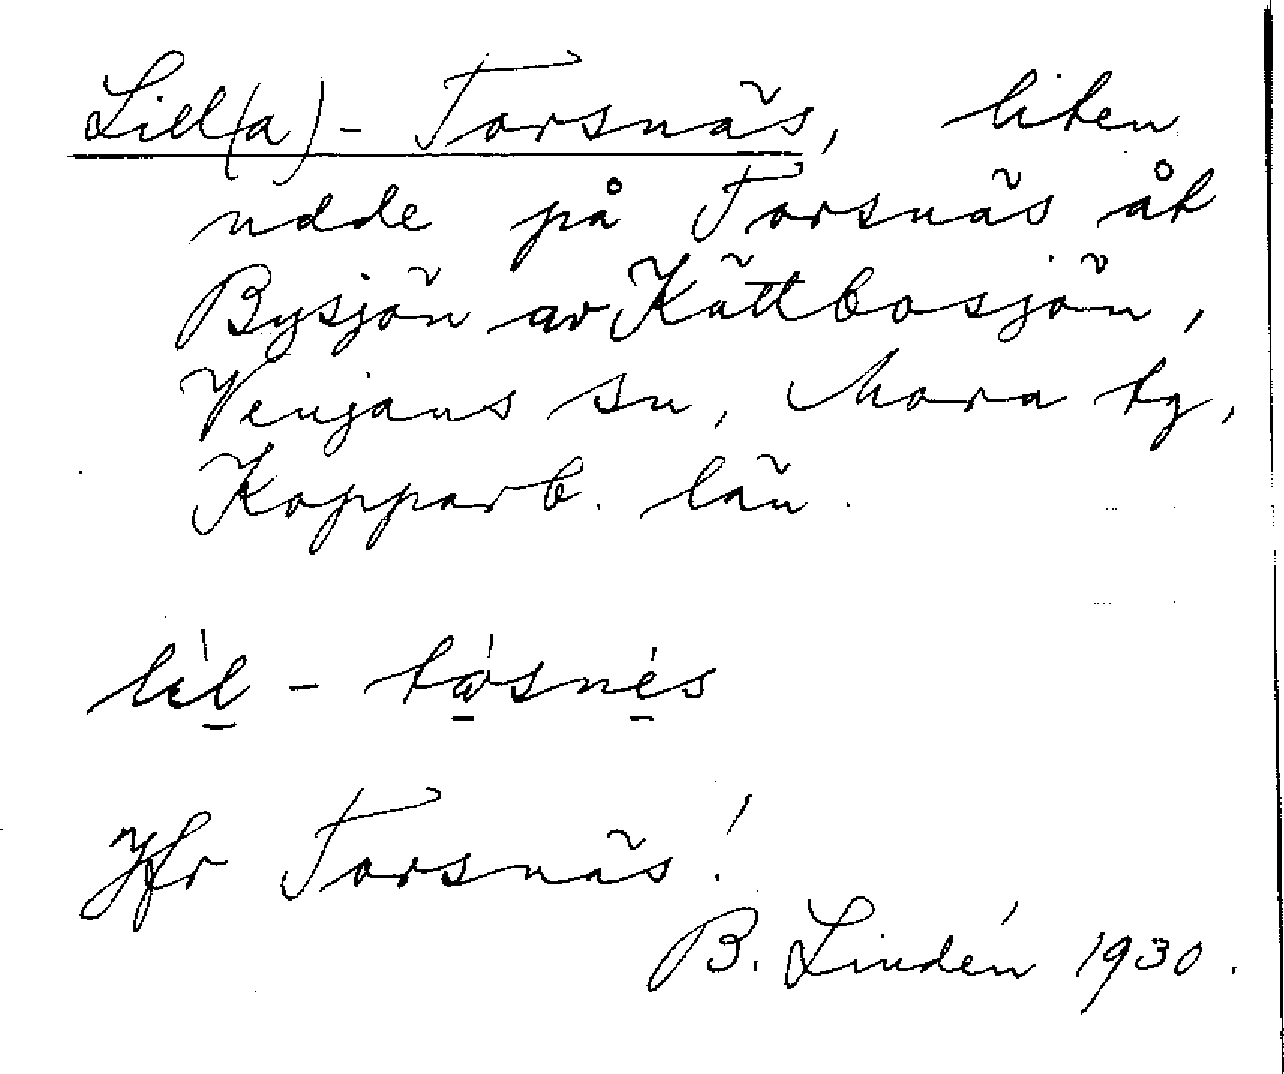 Lill(a)-Torsnäs, liten
udde på Torsnäs åt
Bysjön av Kättbosjön,
Venjans sn, Mora tg,
Kopparb. län.
Jfr Torsnäs!
B. Lindén 1930.